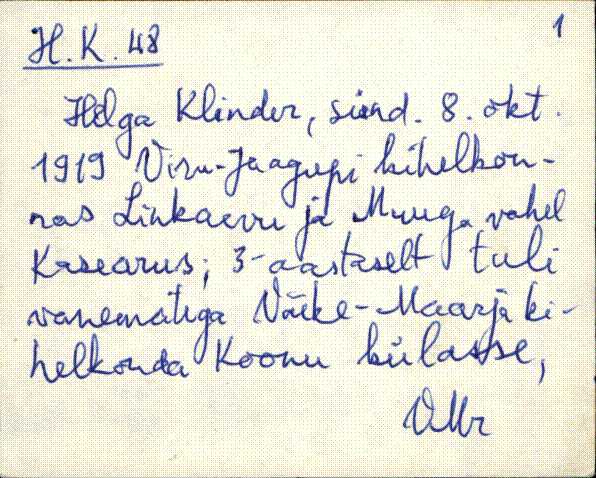 1
H.K. 48
Helga Klinder, sünd. 8. okt.
1919 Viru-Jaagupi kihelkon-
nas Linkaevu ja Muuga vahel
Kasearus; 3-aastaselt tuli
vanematega Väike-Maarja ki-
helkonda Koonu külasse,
VMr